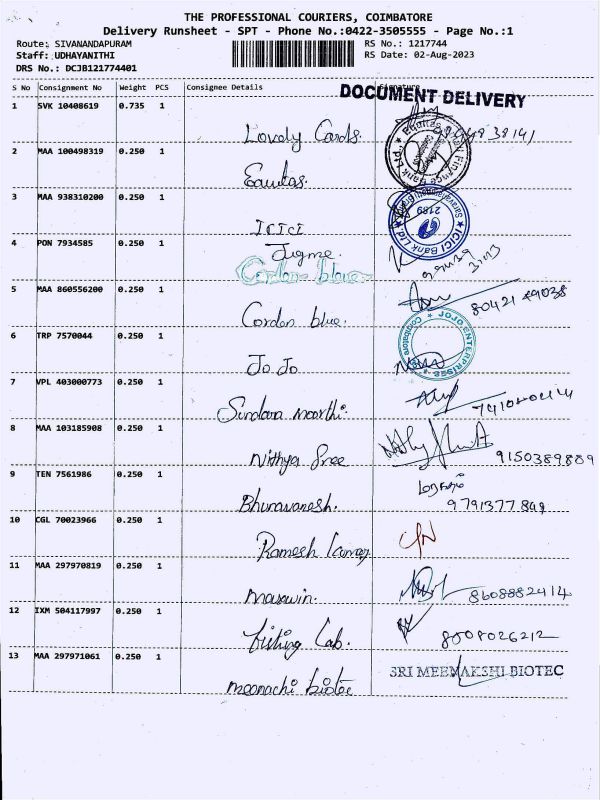 THE PROFESSIONAL COURIERS, COIMBATORE
Delivery Runsheet - SPT - Phone No.:0422-3505555 - Page No.:1
Route: SIVANANDAPURAM RS No.: 1217744
Staff: UDHAYANITHI RS Date: 02-Aug-2023
DRS No.: DCJB121774401
S No Consignment No Weight PCS Consignee Details Signature
DOCUMENT DELIVERY
1 SVK 10408619 0.735 1
Lovely Cards
2 MAA 100498319 0.250 1
Equitas
3 MAA 938310200 0.250 1
ICICI
ICICI Bank Ltd
2189
4 PON 7934585 0.250 1
Jigme
Cordon blue
5 MAA 860556200 0.250 1
Cordon blue.
6 TRP 7570044 0.250 1
JoJo
JOJO ENTERPRISES
Coimbatore
7 VPL 403000773 0.250 1
Sundara moorthi.
8 MAA 103185908 0.250 1
Nithya Sree
9150389889
9 TEN 7561986 0.250 1
Bhuvaneesh.
9791377849
10 CGL 70023966 0.250 1
Ramesh kumar
11 MAA 297970819 0.250 1
8608882414
12 IXM 504117997 0.250 1
Lab.
8508026212
13 MAA 297971061 0.250 1
meenachi biotec
SRI MEENAKSHI BIOTEC